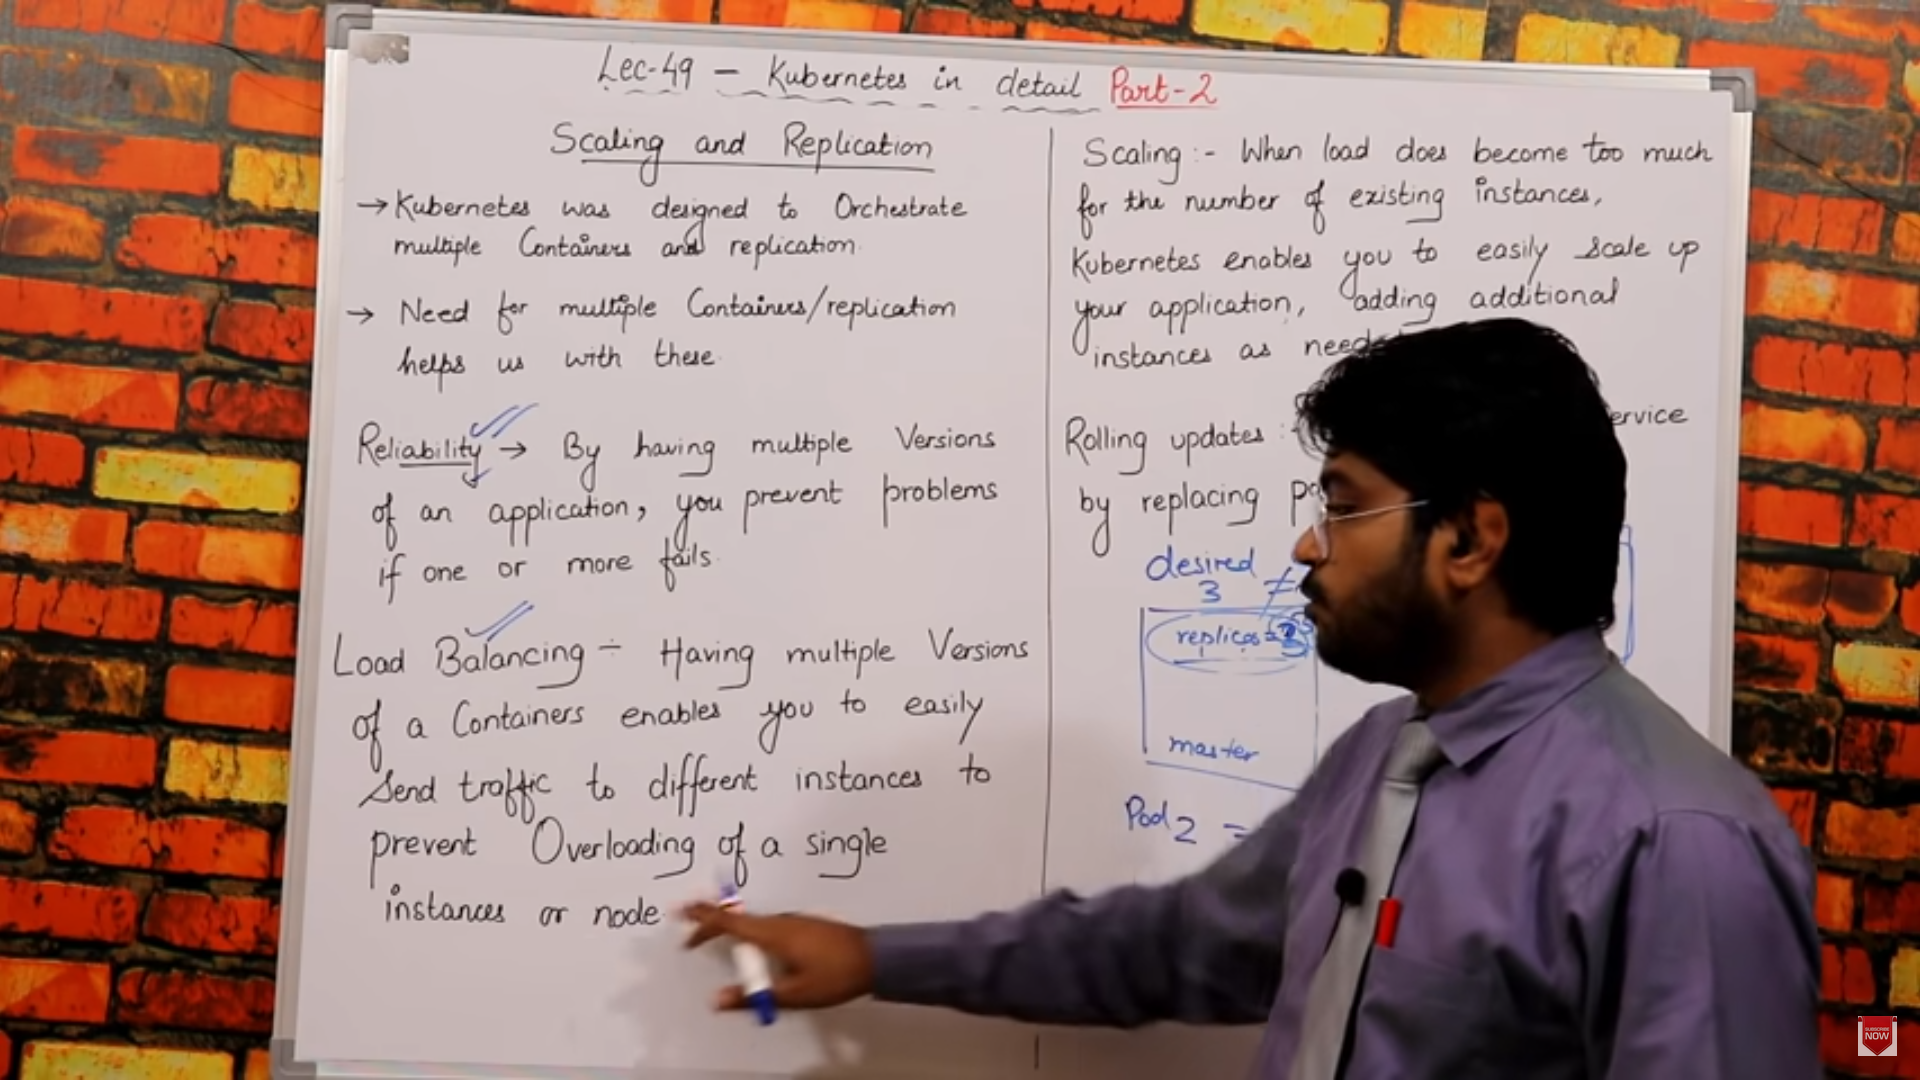 Lec-49 - Kubernetes in detail Part-2
Scaling and Replication
→ Kubernetes was designed to Orchestrate
multiple Containers and replication.
→ Need for multiple Containers/replication
helps us with these
Reliability → By having multiple Versions
of an application, you prevent problems
if one or more fails.
Load Balancing ÷ Having multiple Versions
of a Containers enables you to easily
Send traffic to different instances to
prevent Overloading of a single
instances or node.
Scaling :- When load does become too much
for the number of existing instances,
Kubernetes enables you to easily scale up
your application, adding additional
instances as need
Rolling updates : ervice
by replacing
desired
3 ≠
replicas =
master
Pod 2 =
SUBSCRIBE
NOW